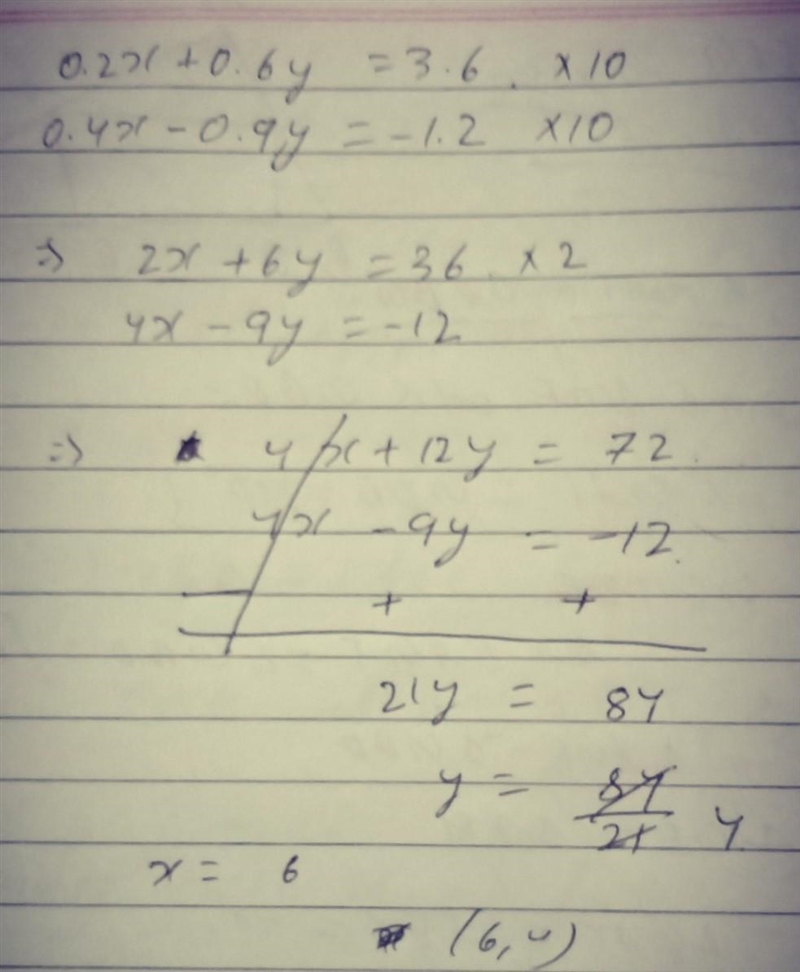 0.2x + 0.6y = 3.6 . × 10
0.4x - 0.9y = -1.2 × 10
⇒ 2x + 6y = 36 × 2
4x - 9y = -12
⇒ 4x + 12y = 72.
4x - 9y = -12.
- + +
21y = 84
y = 84/21 4
x = 6
(6,4)